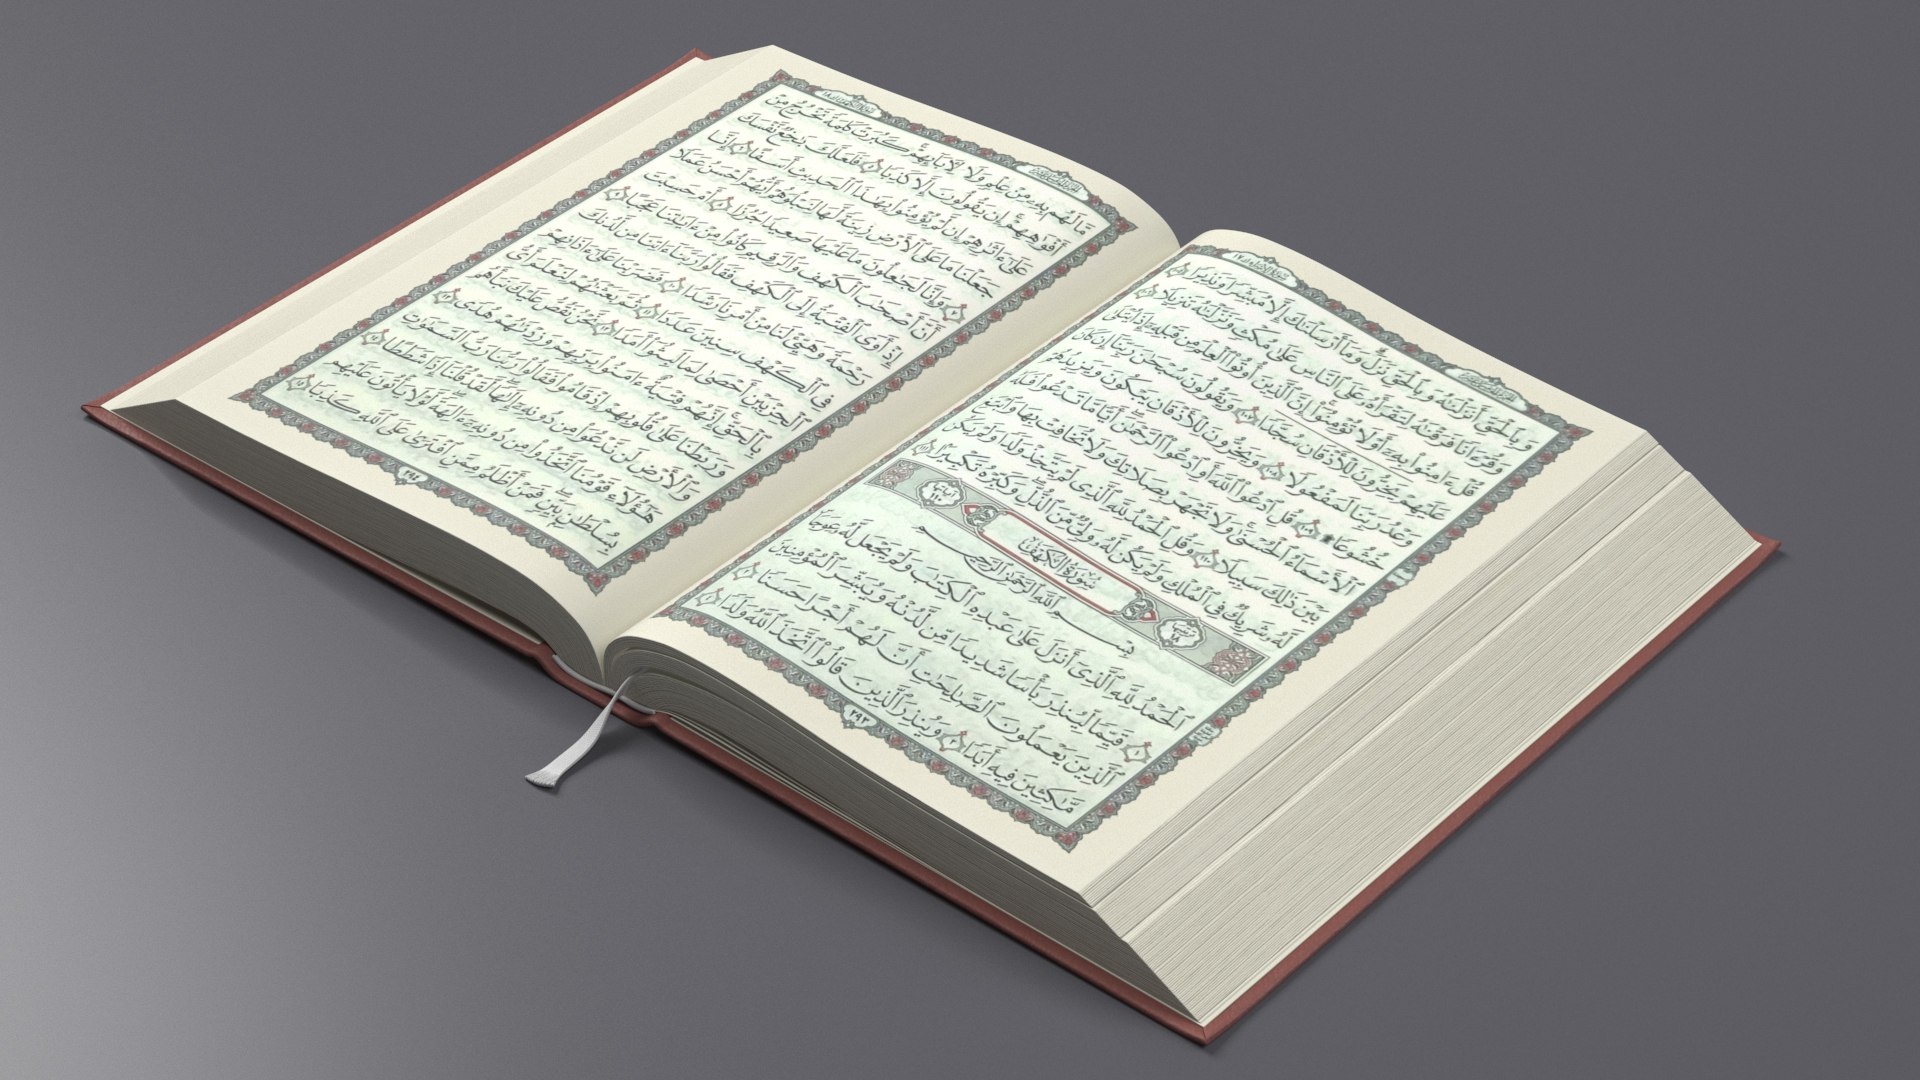 وَبِٱلْحَقِّ أَنزَلْنَٰهُ وَبِٱلْحَقِّ نَزَلَ ۗ وَمَآ أَرْسَلْنَٰكَ إِلَّا مُبَشِّرًا وَنَذِيرًا ١٠٥
وَقُرْءَانًا فَرَقْنَٰهُ لِتَقْرَأَهُۥ عَلَى ٱلنَّاسِ عَلَىٰ مُكْثٍ وَنَزَّلْنَٰهُ تَنزِيلًا ١٠٦
قُلْ ءَامِنُوا۟ بِهِۦٓ أَوْ لَا تُؤْمِنُوٓا۟ ۚ إِنَّ ٱلَّذِينَ أُوتُوا۟ ٱلْعِلْمَ مِن قَبْلِهِۦٓ إِذَا يُتْلَىٰ
عَلَيْهِمْ يَخِرُّونَ لِلْأَذْقَانِ سُجَّدًا ١٠٧ وَيَقُولُونَ سُبْحَٰنَ رَبِّنَآ إِن كَانَ
وَعْدُ رَبِّنَا لَمَفْعُولًا ١٠٨ وَيَخِرُّونَ لِلْأَذْقَانِ يَبْكُونَ وَيَزِيدُهُمْ
خُشُوعًا ۩ ١٠٩ قُلِ ٱدْعُوا۟ ٱللَّهَ أَوِ ٱدْعُوا۟ ٱلرَّحْمَٰنَ ۖ أَيًّا مَّا تَدْعُوا۟ فَلَهُ
ٱلْأَسْمَآءُ ٱلْحُسْنَىٰ ۚ وَلَا تَجْهَرْ بِصَلَاتِكَ وَلَا تُخَافِتْ بِهَا وَٱبْتَغِ
بَيْنَ ذَٰلِكَ سَبِيلًا ١١٠ وَقُلِ ٱلْحَمْدُ لِلَّهِ ٱلَّذِى لَمْ يَتَّخِذْ وَلَدًا وَلَمْ يَكُن
لَّهُۥ شَرِيكٌ فِى ٱلْمُلْكِ وَلَمْ يَكُن لَّهُۥ وَلِىٌّ مِّنَ ٱلذُّلِّ ۖ وَكَبِّرْهُ تَكْبِيرًۢا ١١١
سُورَةُ الكَهْفِ
بِسْمِ ٱللَّهِ ٱلرَّحْمَٰنِ ٱلرَّحِيمِ
ٱلْحَمْدُ لِلَّهِ ٱلَّذِىٓ أَنزَلَ عَلَىٰ عَبْدِهِ ٱلْكِتَٰبَ وَلَمْ يَجْعَل لَّهُۥ عِوَجَا ۜ
١ قَيِّمًا لِّيُنذِرَ بَأْسًا شَدِيدًا مِّن لَّدُنْهُ وَيُبَشِّرَ ٱلْمُؤْمِنِينَ
ٱلَّذِينَ يَعْمَلُونَ ٱلصَّٰلِحَٰتِ أَنَّ لَهُمْ أَجْرًا حَسَنًا ٢
مَّٰكِثِينَ فِيهِ أَبَدًا ٣ وَيُنذِرَ ٱلَّذِينَ قَالُوا۟ ٱتَّخَذَ ٱللَّهُ وَلَدًا ٤
٢٩٣
مَّا لَهُم بِهِۦ مِنْ عِلْمٍ وَلَا لِءَابَآئِهِمْ ۚ كَبُرَتْ كَلِمَةً تَخْرُجُ مِنْ
أَفْوَٰهِهِمْ ۚ إِن يَقُولُونَ إِلَّا كَذِبًا ٥ فَلَعَلَّكَ بَٰخِعٌ نَّفْسَكَ
عَلَىٰٓ ءَاثَٰرِهِمْ إِن لَّمْ يُؤْمِنُوا۟ بِهَٰذَا ٱلْحَدِيثِ أَسَفًا ٦ إِنَّا
جَعَلْنَا مَا عَلَى ٱلْأَرْضِ زِينَةً لَّهَا لِنَبْلُوَهُمْ أَيُّهُمْ أَحْسَنُ عَمَلًا
٧ وَإِنَّا لَجَٰعِلُونَ مَا عَلَيْهَا صَعِيدًا جُرُزًا ٨ أَمْ حَسِبْتَ
أَنَّ أَصْحَٰبَ ٱلْكَهْفِ وَٱلرَّقِيمِ كَانُوا۟ مِنْ ءَايَٰتِنَا عَجَبًا ٩
إِذْ أَوَى ٱلْفِتْيَةُ إِلَى ٱلْكَهْفِ فَقَالُوا۟ رَبَّنَآ ءَاتِنَا مِن لَّدُنكَ
رَحْمَةً وَهَيِّئْ لَنَا مِنْ أَمْرِنَا رَشَدًا ١٠ فَضَرَبْنَا عَلَىٰٓ ءَاذَانِهِمْ
فِى ٱلْكَهْفِ سِنِينَ عَدَدًا ١١ ثُمَّ بَعَثْنَٰهُمْ لِنَعْلَمَ أَىُّ
ٱلْحِزْبَيْنِ أَحْصَىٰ لِمَا لَبِثُوٓا۟ أَمَدًا ١٢ نَّحْنُ نَقُصُّ عَلَيْكَ نَبَأَهُم
بِٱلْحَقِّ ۚ إِنَّهُمْ فِتْيَةٌ ءَامَنُوا۟ بِرَبِّهِمْ وَزِدْنَٰهُمْ هُدًى ١٣
وَرَبَطْنَا عَلَىٰ قُلُوبِهِمْ إِذْ قَامُوا۟ فَقَالُوا۟ رَبُّنَا رَبُّ ٱلسَّمَٰوَٰتِ
وَٱلْأَرْضِ لَن نَّدْعُوَا۟ مِن دُونِهِۦٓ إِلَٰهًا ۖ لَّقَدْ قُلْنَآ إِذًا شَطَطًا ١٤
هَٰٓؤُلَآءِ قَوْمُنَا ٱتَّخَذُوا۟ مِن دُونِهِۦٓ ءَالِهَةً ۖ لَّوْلَا يَأْتُونَ عَلَيْهِم
بِسُلْطَٰنٍۭ بَيِّنٍ ۖ فَمَنْ أَظْلَمُ مِمَّنِ ٱفْتَرَىٰ عَلَى ٱللَّهِ كَذِبًا ١٥
٢٩٤